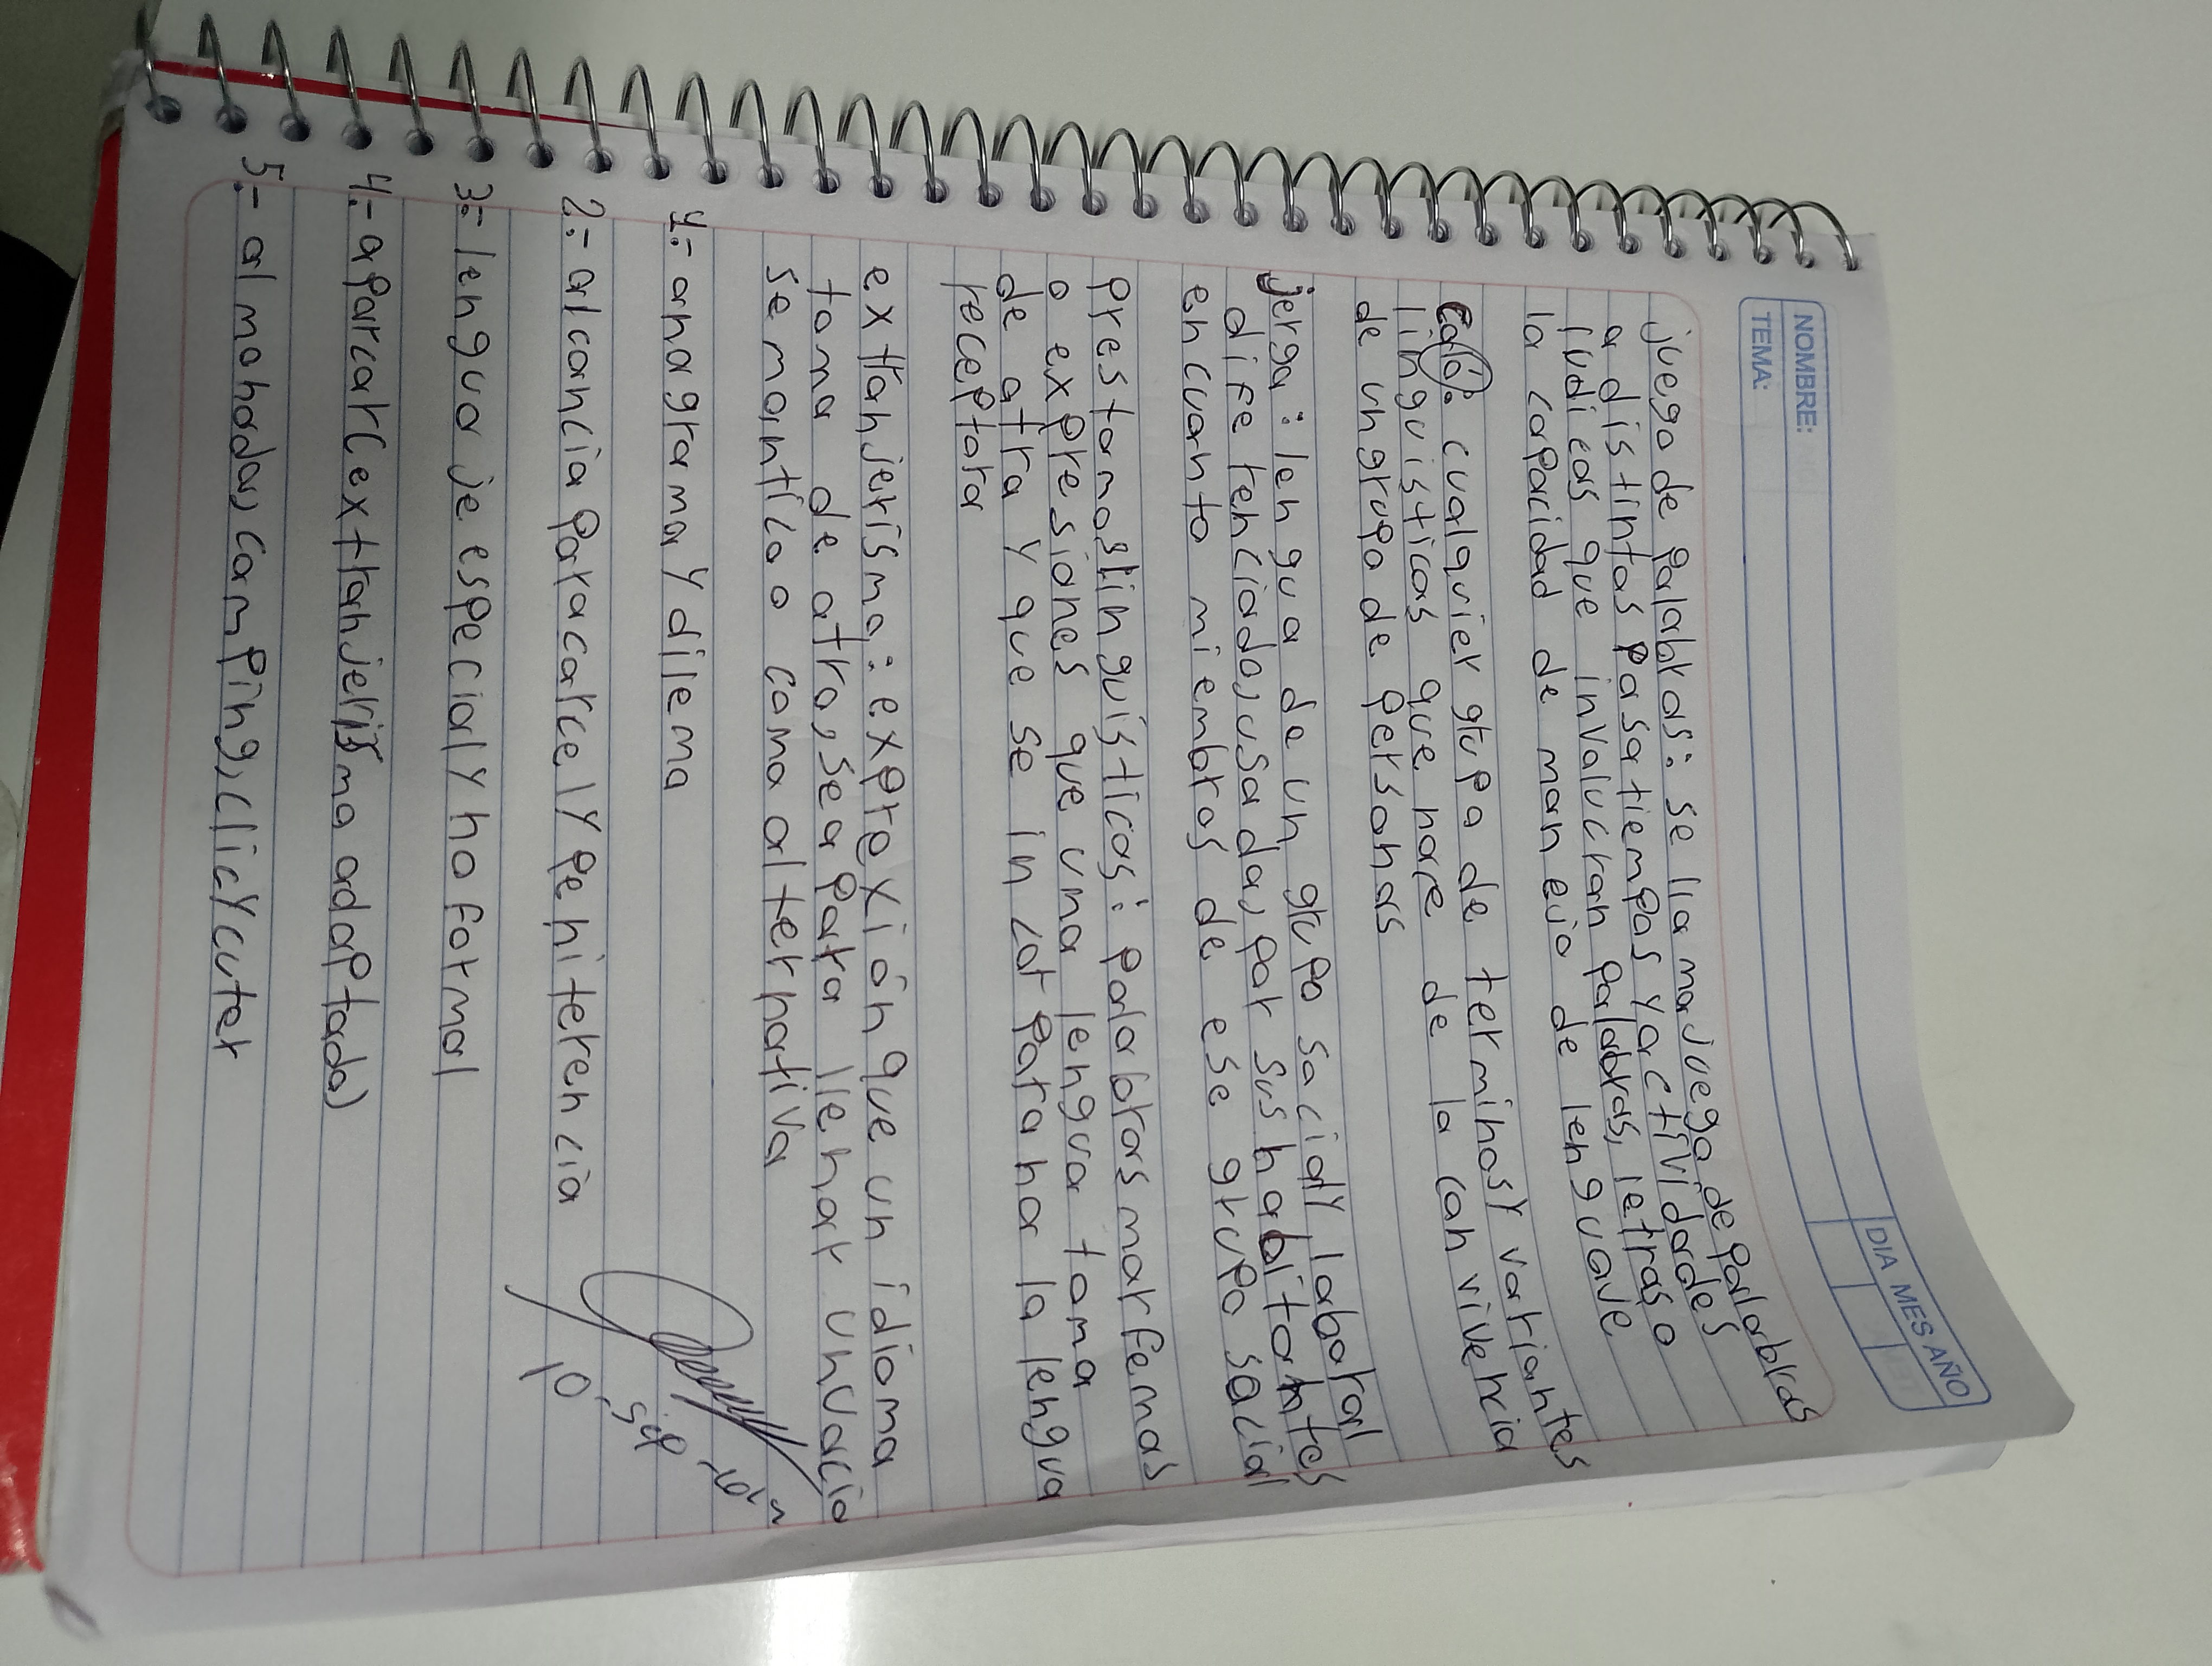 NOMBRE:
DIA MES AÑO
TEMA:
juego de palabras: se llama juego de palabras
a distintos pasatiempos y actividades
ludicos que involucran palabras, letras o
la capacidad de manejo de lenguaje
Caló: cualquier grupo de terminos y variantes
linguisticas que nace de la convivencia
de un grupo de personas
jerga: lengua de un grupo social y laboral
diferenciado, usada, por sus habitantes
en cuanto miembros de ese grupo social
prestamos linguisticos: palabras morfemas
o expresiones que una lengua toma
de otra y que se incorpora no la lengua
receptora
extranjerismo: exprexión que un idioma
toma de otro, sea para llenar un vacio
semantico o como alternativa
1.- anagrama y dilema
2.- alcancia para carcel y peniterencia
3.- lenguaje especial y no formal
4.- aparcar (extranjerismo adaptado)
5.- almohada, camping, clic y cuter
10